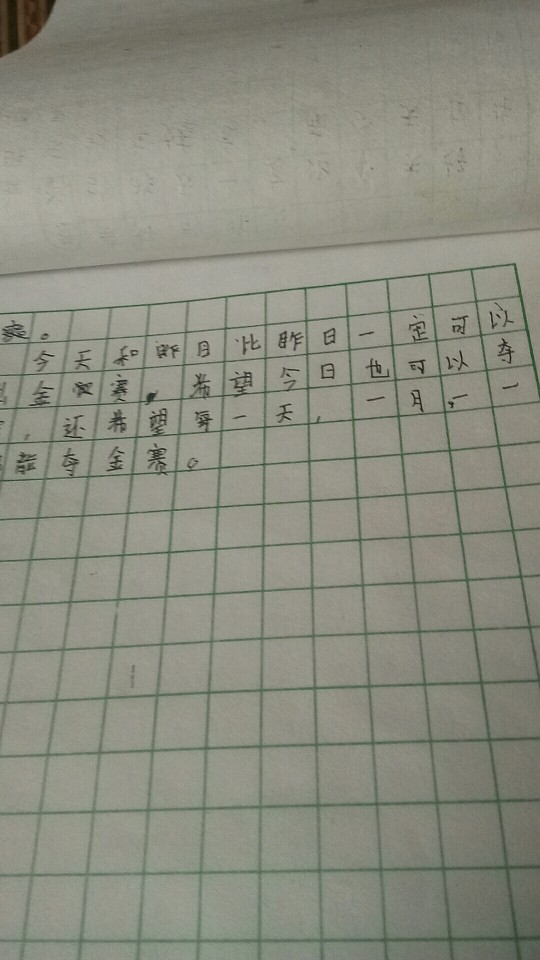 赛。
今天和昨日比昨日一定可以
金赛，希望今日也可以夺
，还希望每一天，一月，一一
能夺金赛。